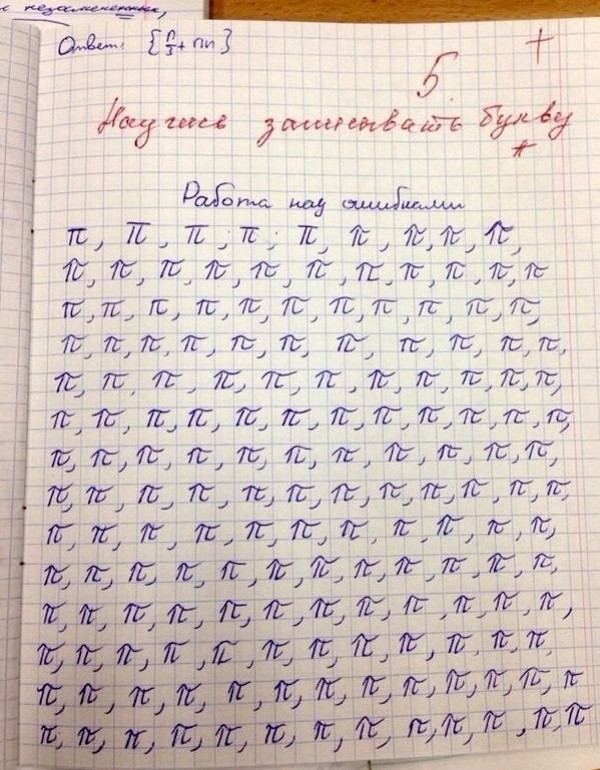 незамененных,
Ответ: {п/3 + пn}
5 +
Научись записывать букву π
Работа над ошибками
π, π, π, π, π, π, π, π, π,
π, π, π, π, π, π, π, π, π, π, π
π, π, π, π, π, π, π, π, π, π, π,
π, π, π, π, π, π, π, π, π, π, π,
π, π, π, π, π, π, π, π, π, π, π,
π, π, π, π, π, π, π, π, π, π, π, π,
π, π, π, π, π, π, π, π, π, π, π,
π, π, π, π, π, π, π, π, π, π, π, π,
π, π, π, π, π, π, π, π, π, π, π,
π, π, π, π, π, π, π, π, π, π, π, π,
π, π, π, π, π, π, π, π, π, π, π, π,
π, π, π, π, π, π, π, π, π, π, π, π,
π, π, π, π, π, π, π, π, π, π, π, π, π
π, π, π, π, π, π, π, π, π, π, π, π, π